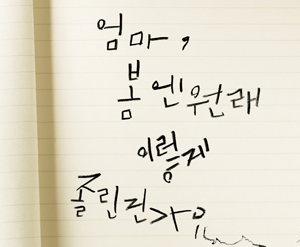 엄마,
봄엔 원래
이렇게
졸린건가요